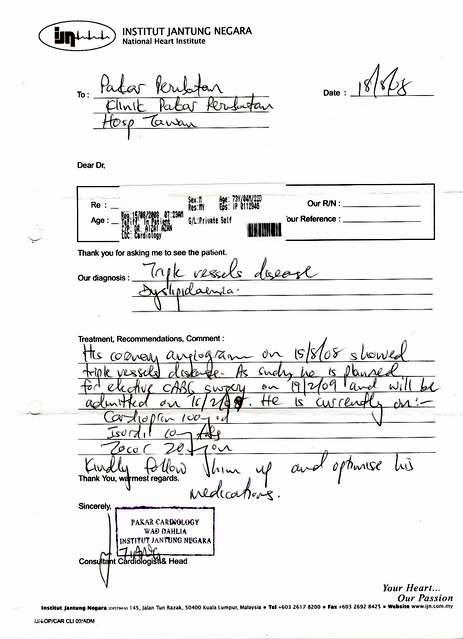 ijn
INSTITUT JANTUNG NEGARA
National Heart Institute
To : Pakar Perubatan
Date : 18/8/08
Klinik Pakar Perubatan
Hosp Tawau
Dear Dr,
Re :
Sex:M Age: 73Y/04M/22D
Res:MY Eps: IP 0112946
Our R/N :
Age :
Reg 15/08/2008 07:23AM
Tariff: In Patient G/L:Private Self
C/P: DR. AIZAI AZAN
LOC: Cardiology
our Reference :
Thank you for asking me to see the patient.
Our diagnosis : Triple vessels disease
Dyslipidaemia.
Treatment, Recommendations, Comment :
His coronary angiogram on 15/8/08 showed
triple vessels disease. As such, he is planned
for elective CABG surgery on 19/2/09 and will be
admitted on 16/2/09. He is currently on:-
Cardioprin 100mg od
Isordil 10mg tds
Zocor 20mg on
Kindly follow him up and optimise his
Thank You, warmest regards.
medications.
Sincerely,
PAKAR CARDIOLOGY
WAD DAHLIA
INSTITUT JANTUNG NEGARA
Consultant Cardiologist & Head
Your Heart...
Our Passion
Institut Jantung Negara 145, Jalan Tun Razak, 50400 Kuala Lumpur, Malaysia • Tel +603 2617 8200 • Fax +603 2692 8425 • Website www.ijn.com.my
IJN-OP/CAR CLI 02/ADM